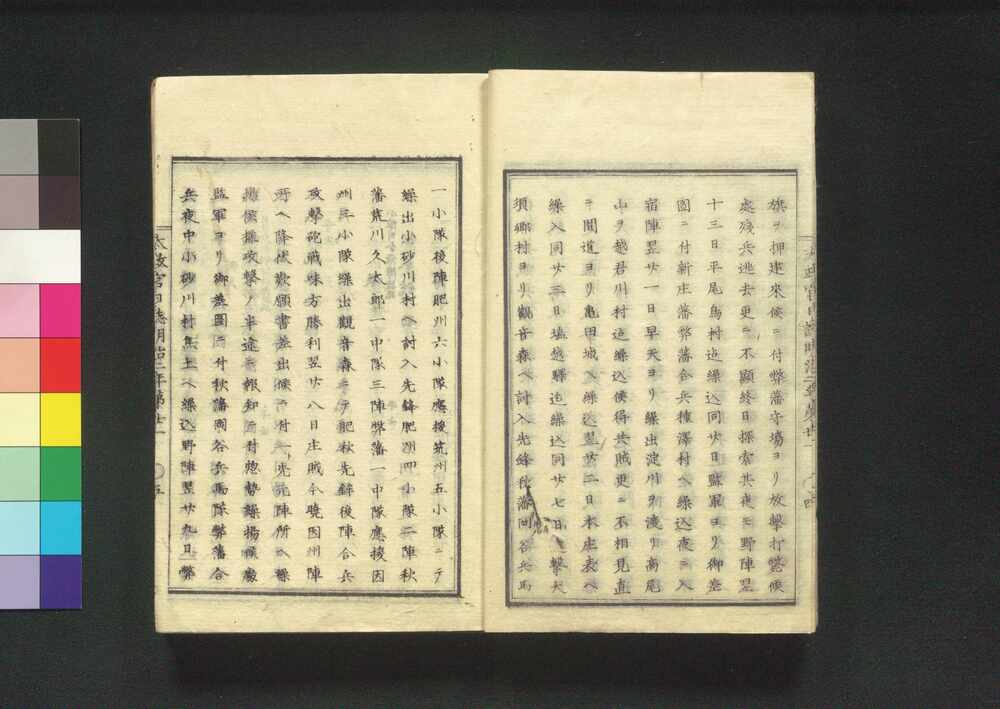 旗ヲ押建來候ニ付弊藩守場ヨリ放撃打斃候
處殘兵逃去更ニ不顯終日探索其夜ニ野陣翌
十三日平尾鳥村迄繰込同廿日監軍ヨリ御差
圖ニ付新庄藩弊藩合兵種澤村ヘ繰込夜ニ入
宿陣翌廿一日早天ヨリ繰出淀川ヲ渡リ高尾
山ヲ越君川村迄繰込候得共賊更ニ不相見直
ニ間道ヨリ亀甲城ヘ繰込翌廿二日本庄表ヘ
繰入同廿三日塩越驛迄繰込同廿七日撃大
須郷村ヨリ觀音森ヘ討入先鋒秋藩同谷兵馬
一小隊後陣肥州六小隊應援筑州五小隊ニテ
繰出小砂川村ヘ討入先鋒肥州四小隊二陣秋
藩荒川久太郎一中隊三陣弊藩一中隊應援因
州三小隊繰出觀音森ニテ肥秋先鋒後陣合兵
攻撃砲戰味方勝利翌廿八日庄賊今曉因州陣
所ヘ降伏歎願書差出候ニ付一ト先元陣所ヘ繰
攘候攘攻撃ノ半途ニ報知ニ付惣勢繰揚候處
監軍ヨリ御差圖ニ付秋藩同谷兵馬隊弊藩合
兵夜中小砂川村焦土ヘ繰込野陣翌廿九日弊
太政官日誌明治二年第廿一
〇五